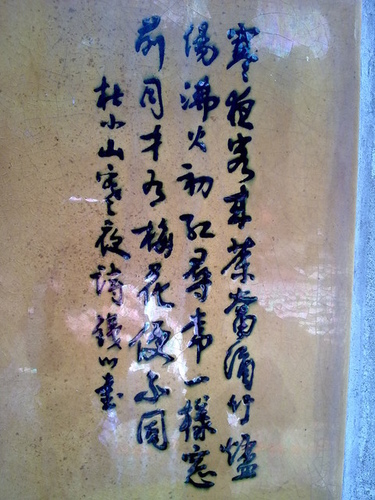 寒夜客來茶當酒竹爐
湯沸火初紅尋常一樣窓
前月才有梅花便不同
杜小山寒夜詩 書